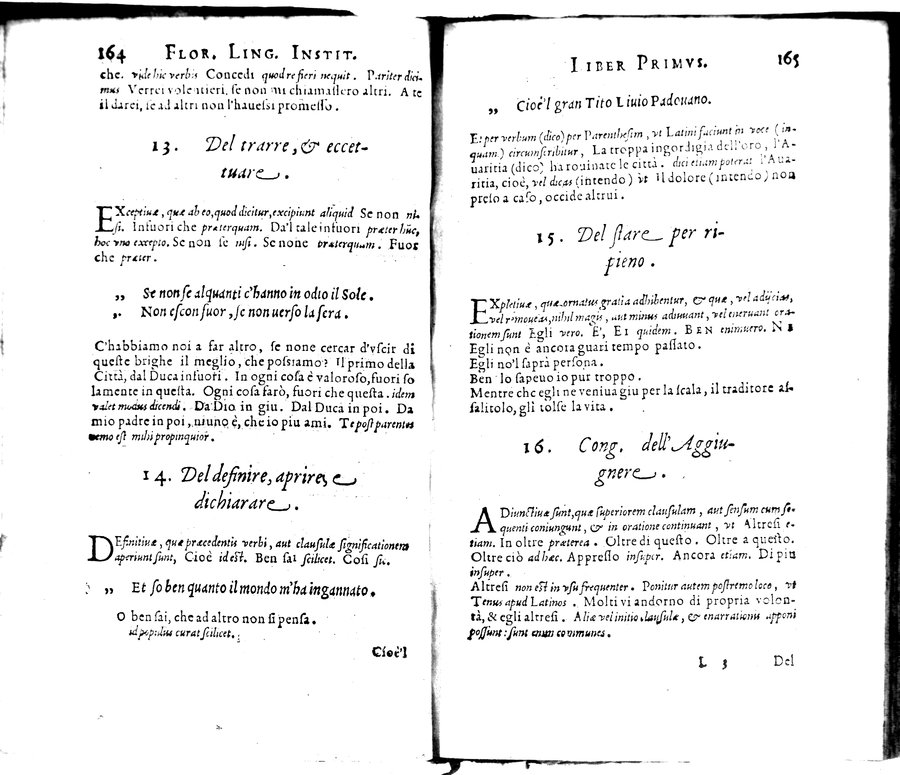 164 FLOR. LING. INSTIT.
che. vide hic verbis Concedi quod re fieri nequit. Pariter dici-
mus Verrei volentieri, se non mi chiamassero altri. A te
il darei, se ad altri non l'hauessi promesso.
13. Del trarre, & eccet-
tuare.
EXceptiuæ, quæ ab eo, quod dicitur, excipiunt aliquid Se non ni-
si. Infuori che præterquam. Da'l tale infuori præter hũc,
hoc vno excepto. Se non se nisi. Se none præterquam. Fuor
che præter.
„ Se non se alquanti c'hanno in odio il Sole.
„ Non escon fuor, se non uerso la sera.
C'habbiamo noi a far altro, se none cercar d'vscir di
queste brighe il meglio, che possiamo? Il primo della
Città, dal Duca infuori. In ogni cosa è valoroso, fuori so
lamente in questa. Ogni cosa farò, fuori che questa. idem
valet modus dicendi. Da Dio in giu. Dal Duca in poi. Da
mio padre in poi, niuno è, che io piu ami. Te post parentes
nemo est mihi propinquior.
14. Del definire, aprire, e
dichiarare.
DEfinitiuæ, quæ præcedentis verbi, aut clausulæ significationem
aperiunt sunt, Cioè id est. Ben sai scilicet. Cosi sic.
„ Et so ben quanto il mondo m'ha ingannato.
O ben sai, che ad altro non si pensa.
id populus curat scilicet.
Cioè'l
LIBER PRIMVS. 165
„ Cioè'l gran Tito Liuio Padouano.
Et per verbum (dico) per Parenthesim, vt Latini faciunt in voce (in-
quam) circumscribitur, La troppa ingordigia dell'oro, l'A-
uaritia (dico) ha rouinate le città. dici etiam poterat l'Aua-
ritia, cioè, vel dicas (intendo) vt il dolore (intendo) non
preso a caso, occide altrui.
15. Del stare per ri-
pieno.
EXpletiuæ, quæ ornatus gratia adhibentur, & quæ, vel adijcias,
vel remoueas, nihil magis, aut minus adiuuant, vel eneruant ora-
tionem sunt Egli vero. E', EI quidem. BEN enimuero. NE
Egli non è ancora guari tempo passato.
Egli no'l saprà persona.
Ben lo sapeuo io pur troppo.
Mentre che egli ne veniua giu per la scala, il traditore as-
salitolo, gli tolse la vita.
16. Cong. dell'Aggiu-
gnere.
ADiunctiuæ sunt, quæ superiorem clausulam, aut sensum cum se-
quenti coniungunt, & in oratione continuant, vt Altresi e-
tiam. In oltre præterea. Oltre di questo. Oltre a questo.
Oltre ciò ad hæc. Appresso insuper. Ancora etiam. Di piu
insuper.
Altresi non est in vsu frequenter. Ponitur autem postremo loco, vt
Tenus apud Latinos. Molti vi andorno di propria volon-
tà, & egli altresi. Aliæ vel initio clausulæ, & enarrationis apponi
possunt: sunt enim communes.
L 3 Del